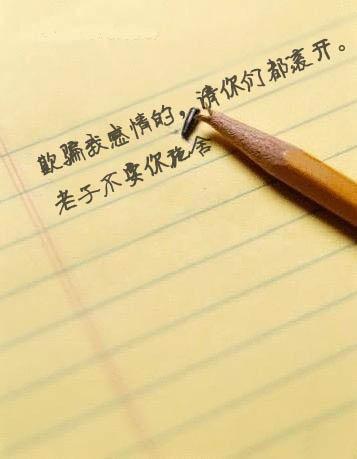 欺骗我感情的，请你们都滚开。
老子不要你施舍